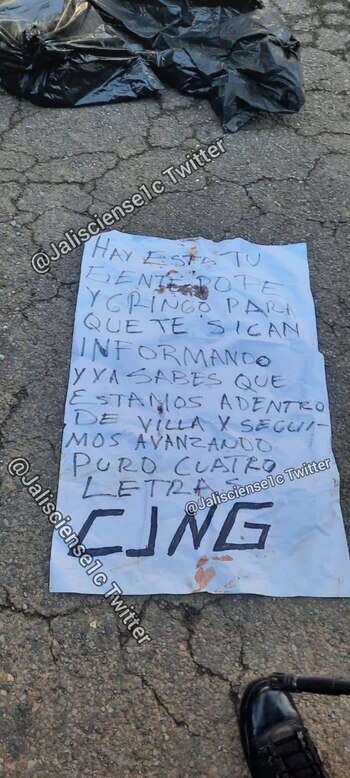 @Jalisciense1c Twitter
HAY ESTA TU
GENTE POTE
Y GRINGO PARA
QUE TE SIGAN
INFORMANDO
Y YA SABES QUE
ESTAMOS ADENTRO
DE VILLA Y SEGUI-
MOS AVANZANDO
PURO CUATRO
LETRAS
@Jalisciense1c Twitter
CJNG
@Jalisciense1c Twitter